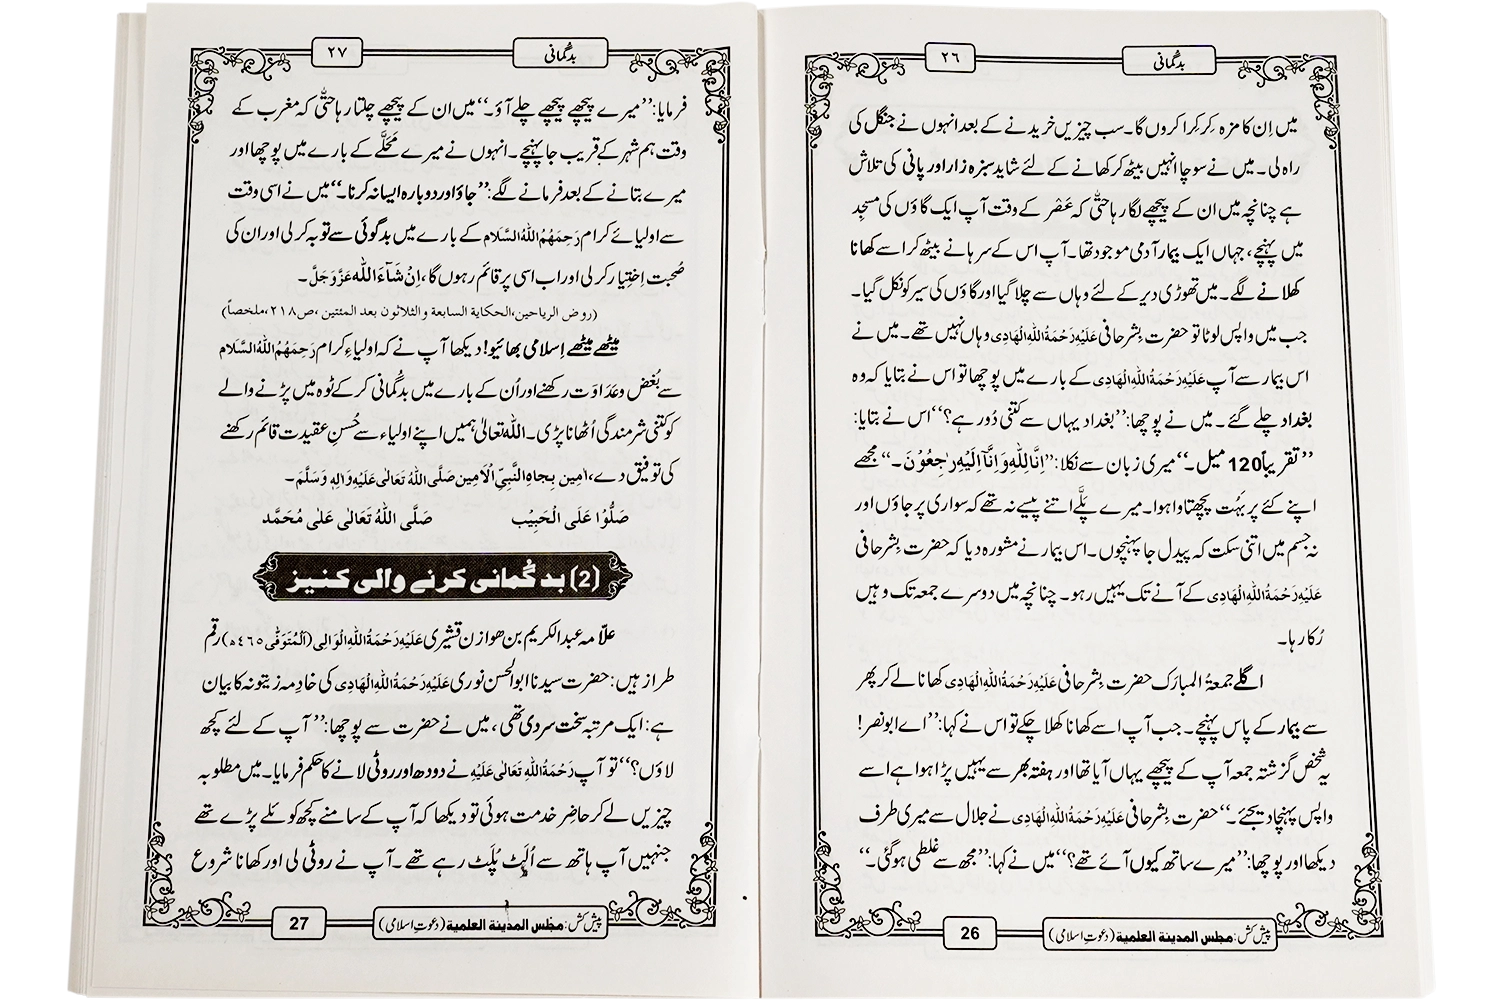 بدگمانی
۲٦
میں اِن کا مزہ کِرکِرا کروں گا۔ سب چیزیں خریدنے کے بعد انہوں نے جنگل کی
راہ لی۔ میں نے سوچا انہیں بیٹھ کر کھانے کے لئے شاید سبزہ زار اور پانی کی تلاش
ہے چنانچہ میں ان کے پیچھے لگا رہا حتّٰی کہ عَصْر کے وقت آپ ایک گاؤں کی مسجِد
میں پہنچے، جہاں ایک بیمار آدمی موجود تھا۔ آپ اس کے سرہانے بیٹھ کر اسے کھانا
کھلانے لگے۔ میں تھوڑی دیر کے لئے وہاں سے چلا گیا اور گاؤں کی سیر کو نکل گیا۔
جب میں واپس لوٹا تو حضرت بِشر حافی عَلَیْہِ رَحْمَۃُ اللہِ الْہَادِی وہاں نہیں تھے۔ میں نے
اس بیمار سے آپ عَلَیْہِ رَحْمَۃُ اللہِ الْہَادِی کے بارے میں پوچھا تو اس نے بتایا کہ وہ
بغداد چلے گئے۔ میں نے پوچھا: ’’بغداد یہاں سے کتنی دُور ہے؟‘‘ اس نے بتایا:
’’تقریباً 120 میل۔‘‘ میری زبان سے نکلا: ’’اِنَّا لِلّٰہِ وَاِنَّآ اِلَیْہِ رٰجِعُوْنَ۔‘‘ مجھے
اپنے کئے پر بہُت پچھتاوا ہوا۔ میرے پَلّے اتنے پیسے نہ تھے کہ سواری پر جاؤں اور
نہ جسم میں اتنی سکت کہ پیدل جا پہنچوں۔ اس بیمار نے مشورہ دیا کہ حضرت بِشر حافی
عَلَیْہِ رَحْمَۃُ اللہِ الْہَادِی کے آنے تک یہیں رہو۔ چنانچہ میں دوسرے جمعہ تک وہیں
رُکا رہا۔
اگلے جمعۃُ المبارَک حضرت بِشر حافی عَلَیْہِ رَحْمَۃُ اللہِ الْہَادِی کھانا لے کر پھر
سے بیمار کے پاس پہنچے۔ جب آپ اسے کھانا کھلا چکے تو اس نے کہا: ’’اے ابونصر!
یہ شخص گزشتہ جمعہ آپ کے پیچھے یہاں آیا تھا اور ہفتہ بھر سے یہیں پڑا ہوا ہے اسے
واپس پہنچا دیجئے۔‘‘ حضرت بِشر حافی عَلَیْہِ رَحْمَۃُ اللہِ الْہَادِی نے جلال سے میری طرف
دیکھا اور پوچھا: ’’میرے ساتھ کیوں آئے تھے؟‘‘ میں نے کہا: ’’مجھ سے غلطی ہوگئی۔‘‘
پیش کش: مجلس المدینۃ العلمیۃ (دعوتِ اسلامی)
26
بدگمانی
۲۷
فرمایا: ’’میرے پیچھے پیچھے چلے آؤ۔‘‘ میں ان کے پیچھے چلتا رہا حتّٰی کہ مغرب کے
وقت ہم شہر کے قریب جا پہنچے۔ انہوں نے میرے مَحَلّے کے بارے میں پوچھا اور
میرے بتانے کے بعد فرمانے لگے: ’’جاؤ اور دوبارہ ایسا نہ کرنا۔‘‘ میں نے اسی وقت
سے اولیائے کرام رَحِمَہُمُ اللہُ السَّلَام کے بارے میں بدگوئی سے توبہ کر لی اور ان کی
صُحبت اِختِیار کر لی اور اب اسی پر قائم رہوں گا، اِنْ شَآءَ اللہ عَزَّوَجَلَّ۔
(روض الریاحین،الحکایۃ السابعۃ والثلاثون بعد المئتین ،ص۲۱۸،ملخصاً)
میٹھے میٹھے اِسلامی بھائیو! دیکھا آپ نے کہ اولیاءِ کرام رَحِمَہُمُ اللہُ السَّلَام
سے بُغض و عَدَاوَت رکھنے اور اُن کے بارے میں بدگُمانی کر کے ٹوہ میں پڑنے والے
کو کتنی شرمندگی اُٹھانا پڑی۔ اللہ تعالیٰ ہمیں اپنے اولیاء سے حُسنِ عقیدت قائم رکھنے
کی توفیق دے، اٰمِین بِجَاہِ النَّبِیِّ الْاَمِین صَلَّی اللہُ تَعَالٰی عَلَیْہِ وَاٰلِہٖ وَسَلَّمَ۔
صَلُّوْا عَلَی الْحَبِیْب صَلَّی اللہُ تَعَالٰی عَلٰی مُحَمَّد
(2) بدگُمانی کرنے والی کنیز
علّامہ عبدالکریم بن ھوازن قشیری عَلَیْہِ رَحْمَۃُ اللہِ الْوَالِی (اَلْمُتَوَفّٰی ٤٦٥ھ) رقم
طراز ہیں: حضرت سیدنا ابوالحسن نوری عَلَیْہِ رَحْمَۃُ اللہِ الْہَادِی کی خادِمہ زیتونہ کا بیان
ہے: ایک مرتبہ سخت سردی تھی، میں نے حضرت سے پوچھا: ’’آپ کے لئے کچھ
لاؤں؟‘‘ تو آپ رَحْمَۃُ اللہِ تَعَالٰی عَلَیْہِ نے دودھ اور روٹی لانے کا حکم فرمایا۔ میں مطلوبہ
چیزیں لے کر حاضِر خدمت ہوئی تو دیکھا کہ آپ کے سامنے کچھ کوئلے پڑے تھے
جنہیں آپ ہاتھ سے اُلَٹ پُلَٹ رہے تھے۔ آپ نے روٹی لی اور کھانا شروع
پیش کش: مجلس المدینۃ العلمیۃ (دعوتِ اسلامی)
27